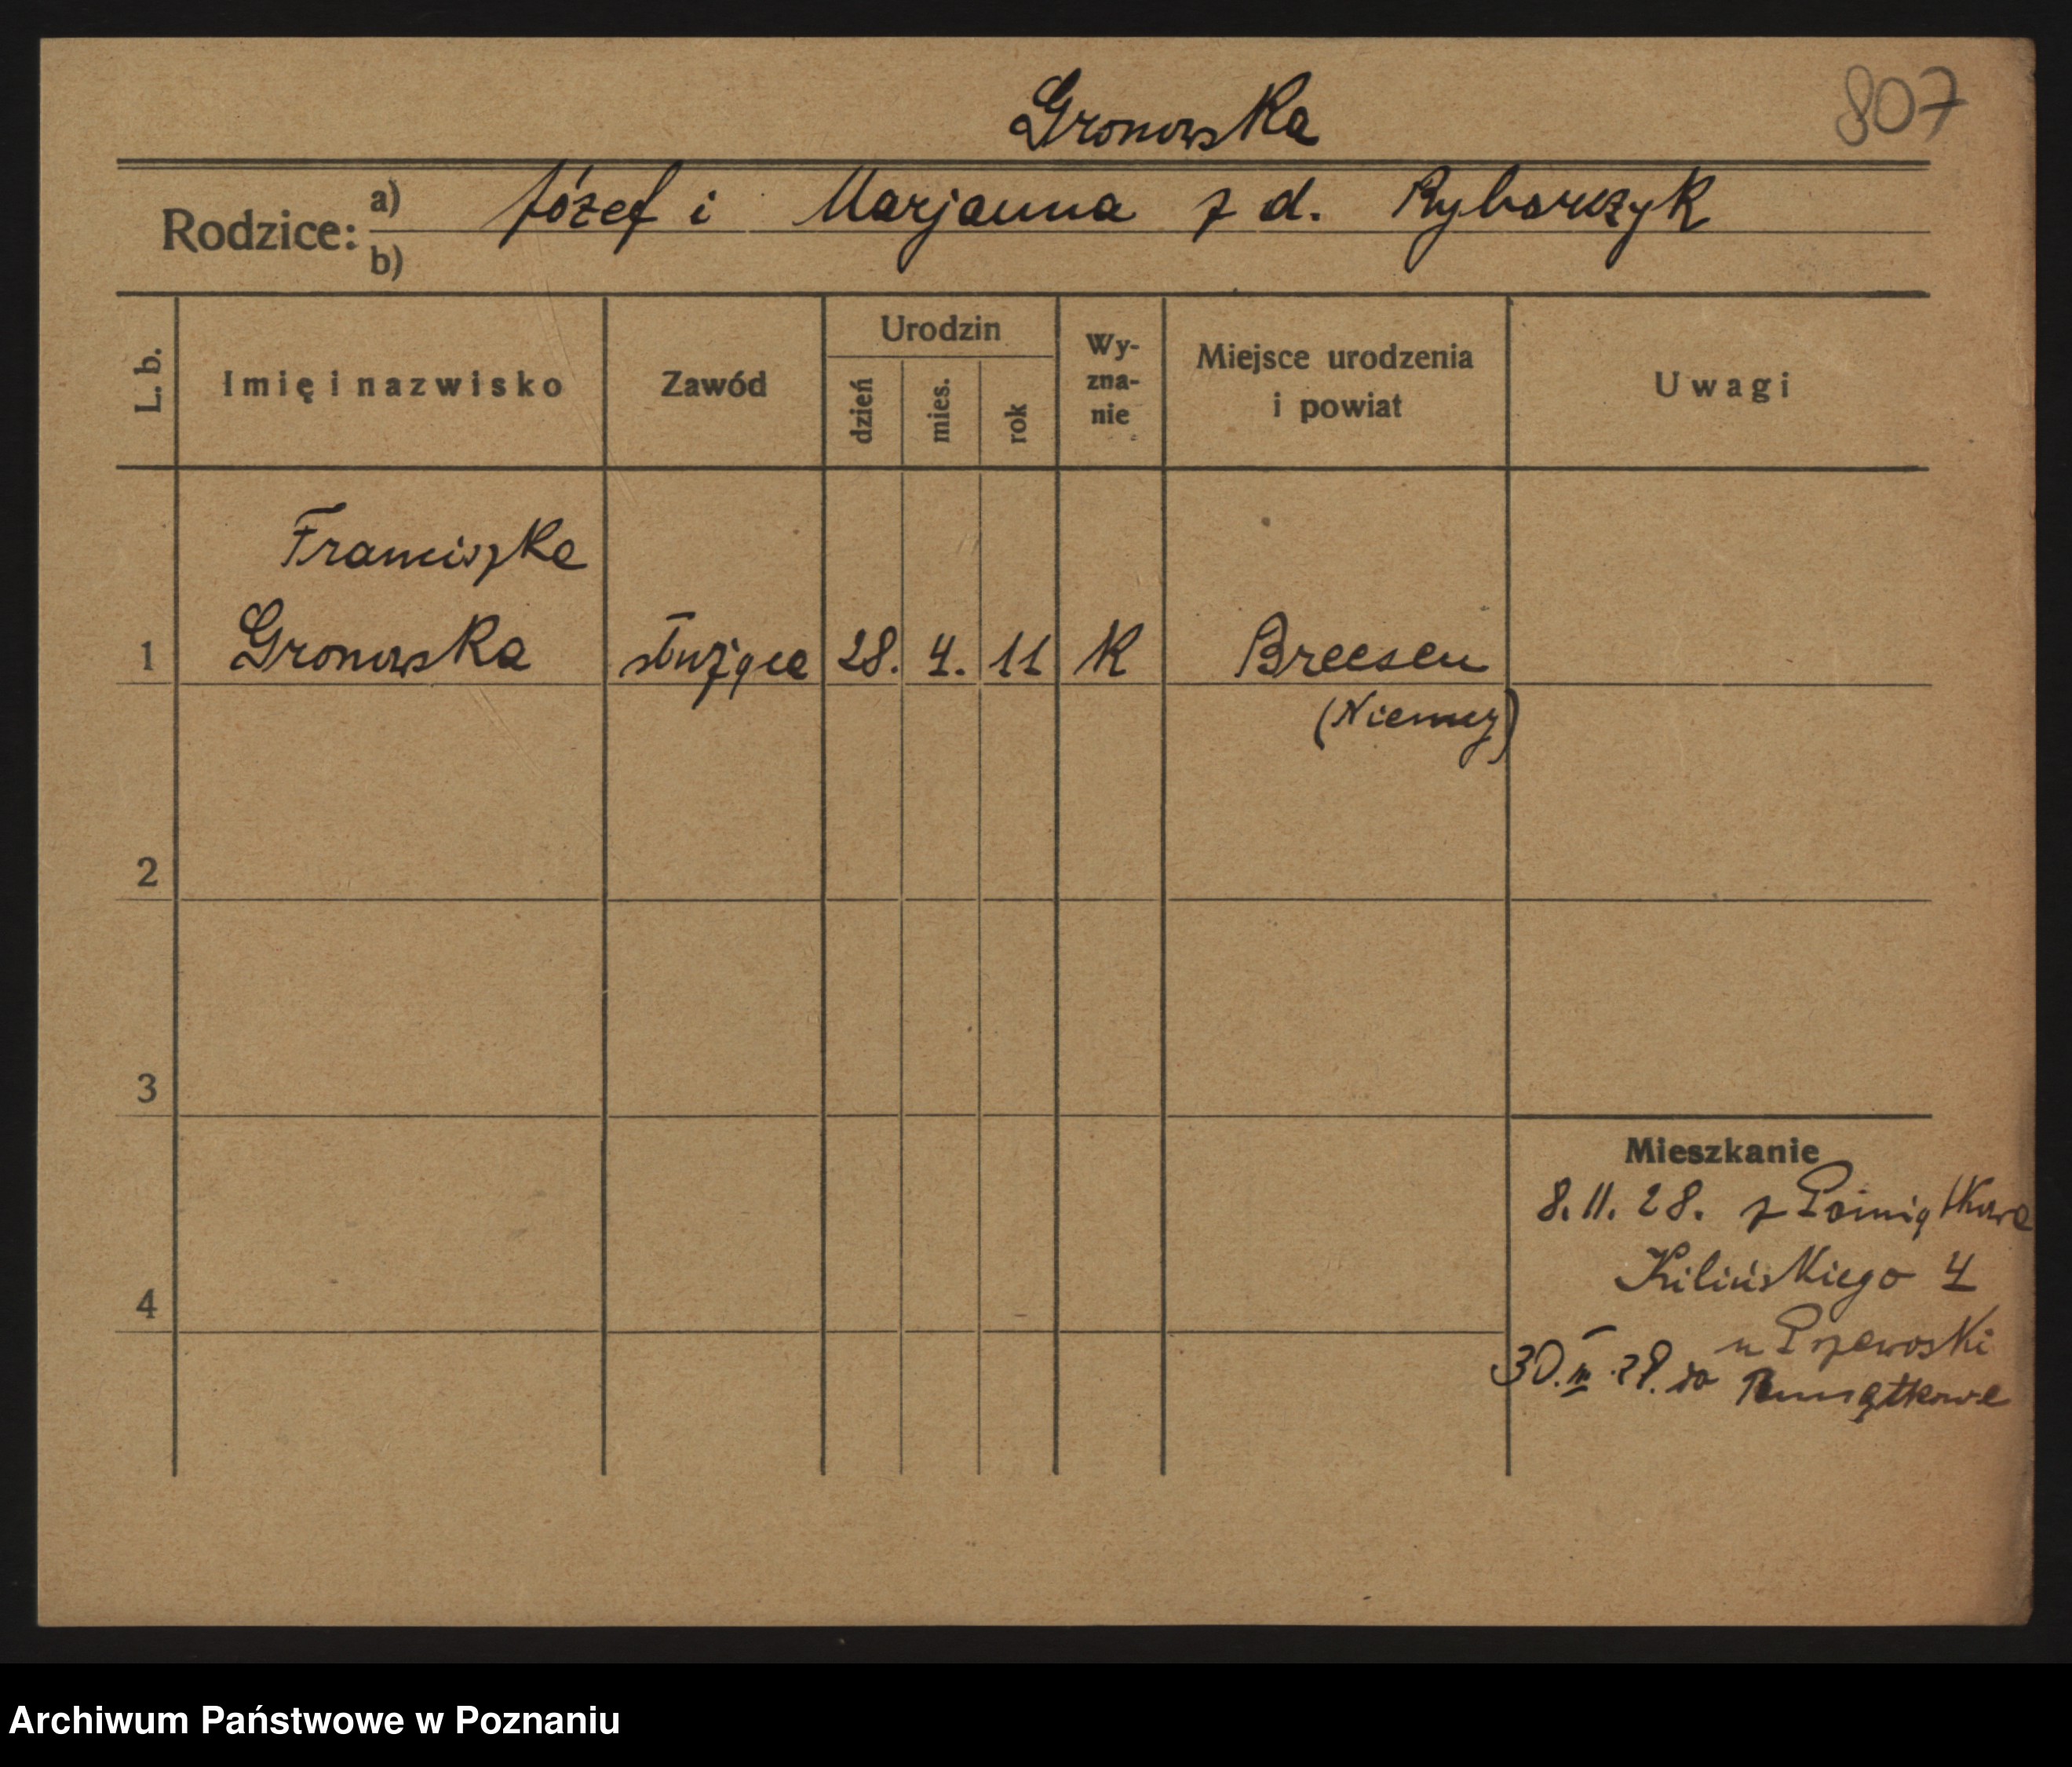 Gronowska
807
Rodzice: a) Józef i Marjanna z d. Rybarczyk
b)
L. b.
Imię i nazwisko
Zawód
Urodzin
dzień
mies.
rok
Wy-
zna-
nie
Miejsce urodzenia
i powiat
Uwagi
Franciszka
1 Gronowska służąca 28. 4. 11 K Breesen
(Niemcy)
2
3
4
Mieszkanie
8. 11. 28. z Pamiątkowa
Kilińskiego 4
u
30. 28. do Pamiątkowa
Archiwum Państwowe w Poznaniu